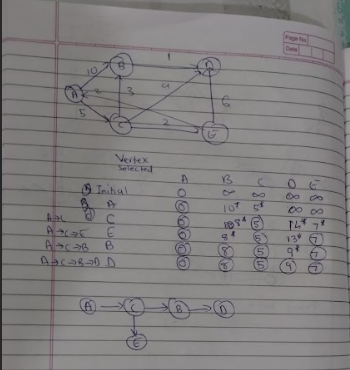 Page No.
Date
B 1 D
10 3 9
A 2 6
5 C 2 E
Vertex
Selected A B C D E
Initial 0 ∞ ∞ ∞ ∞
A 0 10* 5* ∞ ∞
A→C C 0 8* 5 14* 7*
A→C→E E 0 8* 5 13* 7
A→C→B B 0 8 5 9* 7
A→C→B→D D 0 8 5 9 7
A → C → B → D
E